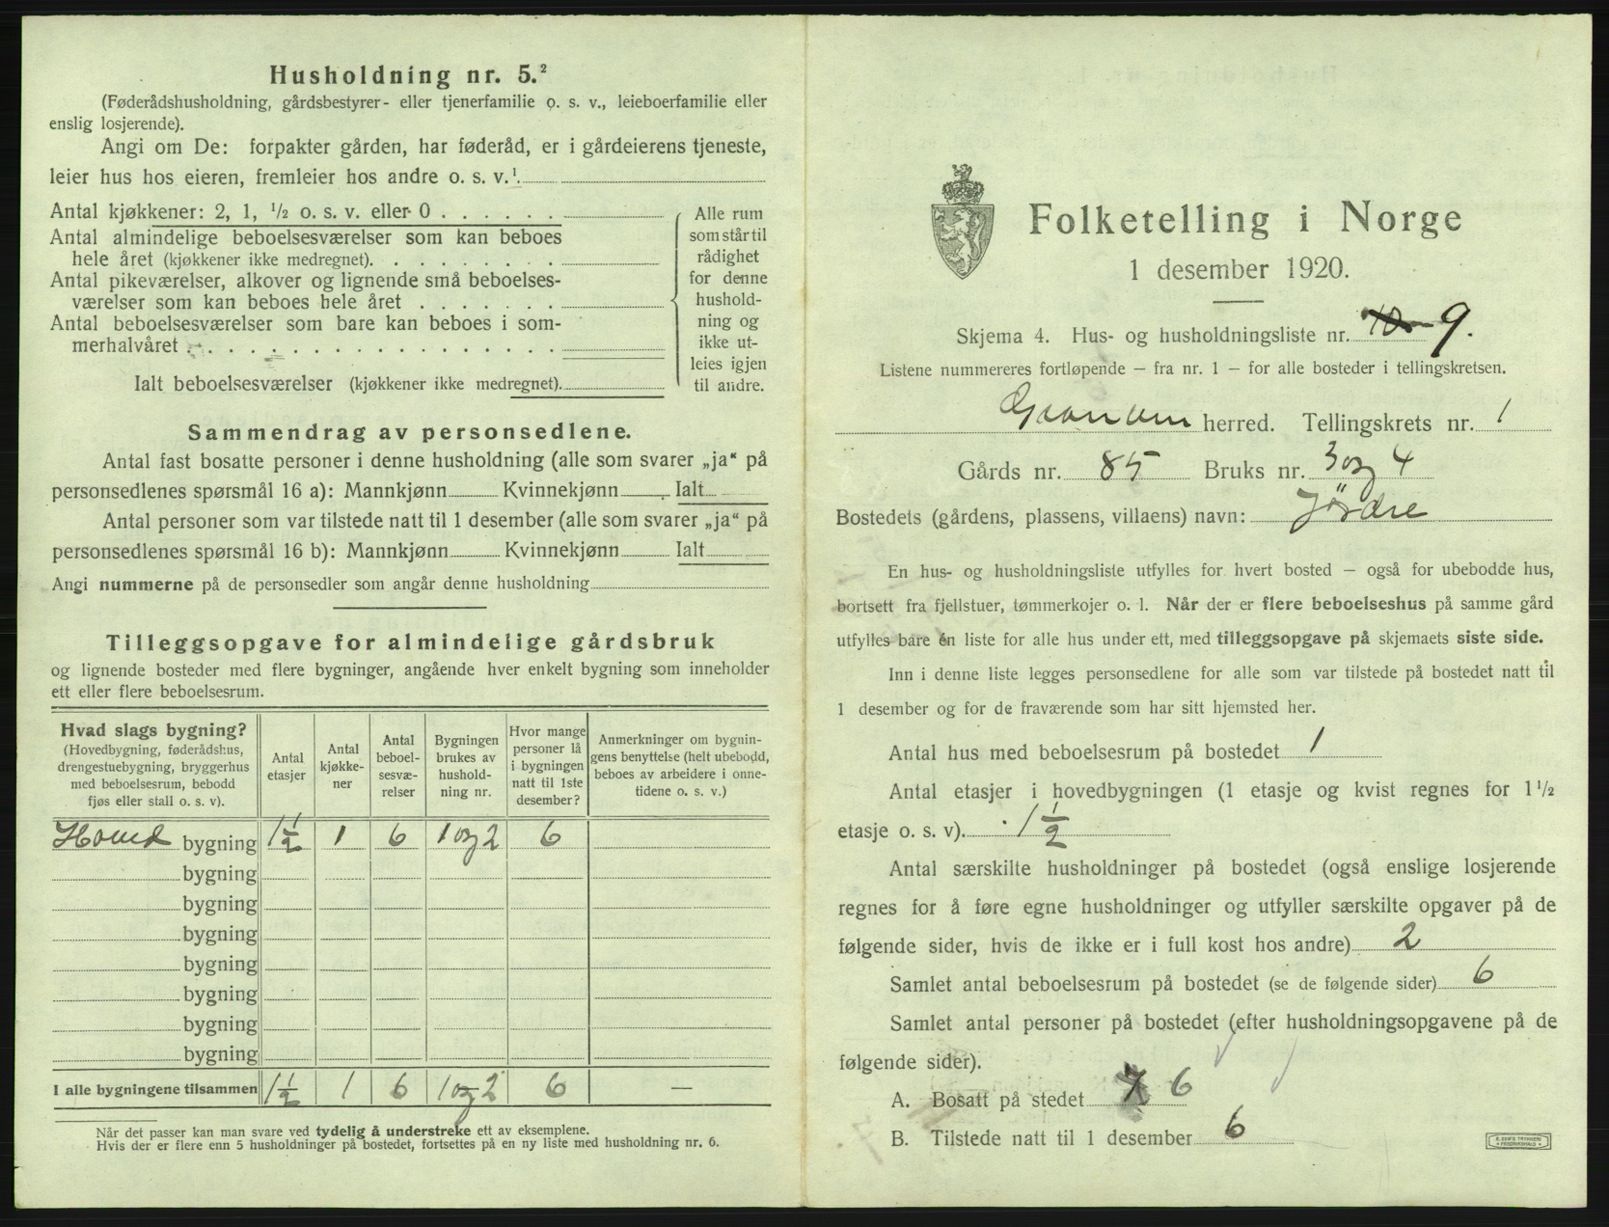 Husholdning nr. 5.²
(Føderådshusholdning, gårdsbestyrer- eller tjenerfamilie o. s. v., leieboerfamilie eller
enslig losjerende).
Angi om De: forpakter gården, har føderåd, er i gårdeierens tjeneste,
leier hus hos eieren, fremleier hos andre o. s. v.¹
Antal kjøkkener: 2, 1, ¹/₂ o. s. v. eller 0
Antal almindelige beboelsesværelser som kan beboes
hele året (kjøkkener ikke medregnet).
Antal pikeværelser, alkover og lignende små beboelses-
værelser som kan beboes hele året
Antal beboelsesværelser som bare kan beboes i som-
merhalvåret
Ialt beboelsesværelser (kjøkkener ikke medregnet).
Alle rum
som står til
rådighet
for denne
hushold-
ning og
ikke ut-
leies igjen
til andre.
Sammendrag av personsedlene.
Antal fast bosatte personer i denne husholdning (alle som svarer „ja“ på
personsedlenes spørsmål 16 a): Mannkjønn Kvinnekjønn Ialt
Antal personer som var tilstede natt til 1 desember (alle som svarer „ja“ på
personsedlenes spørsmål 16 b): Mannkjønn Kvinnekjønn Ialt
Angi nummerne på de personsedler som angår denne husholdning
Tilleggsopgave for almindelige gårdsbruk
og lignende bosteder med flere bygninger, angående hver enkelt bygning som inneholder
ett eller flere beboelsesrum.
Hvad slags bygning?
(Hovedbygning, føderådshus,
drengestuebygning, bryggerhus
med beboelsesrum, bebodd
fjøs eller stall o. s. v).
Antal
etasjer
Antal
kjøkke-
ner
Antal
beboel-
sesvæ-
relser
Bygningen
brukes av
hushold-
ning nr.
Hvor mange
personer lå
i bygningen
natt til 1ste
desember?
Anmerkninger om bygnin-
gens benyttelse (helt ubebodd,
beboes av arbeidere i onne-
tidene o. s. v.)
Hoved bygning 1½ 1 6 1 og 2 6
bygning
bygning
bygning
bygning
bygning
bygning
bygning
I alle bygningene tilsammen 1½ 1 6 1 og 2 6 —
Når det passer kan man svare ved tydelig å understreke ett av eksemplene.
Hvis der er flere enn 5 husholdninger på bostedet, fortsettes på en ny liste med husholdning nr. 6.
Folketelling i Norge
1 desember 1920.
Skjema 4. Hus- og husholdningsliste nr. 10 9.
Listene nummereres fortløpende — fra nr. 1 — for alle bosteder i tellingskretsen.
herred. Tellingskrets nr. 1
Gårds nr. 85 Bruks nr. 3 og 4
Bostedets (gårdens, plassens, villaens) navn: Jördre
En hus- og husholdningsliste utfylles for hvert bosted — også for ubebodde hus,
bortsett fra fjellstuer, tømmerkojer o. l. Når der er flere beboelseshus på samme gård
utfylles bare én liste for alle hus under ett, med tilleggsopgave på skjemaets siste side.
Inn i denne liste legges personsedlene for alle som var tilstede på bostedet natt til
1 desember og for de fraværende som har sitt hjemsted her.
Antal hus med beboelsesrum på bostedet 1
Antal etasjer i hovedbygningen (1 etasje og kvist regnes for 1 ¹/₂
etasje o. s. v). 1½
Antal særskilte husholdninger på bostedet (også enslige losjerende
regnes for å føre egne husholdninger og utfyller særskilte opgaver på de
følgende sider, hvis de ikke er i full kost hos andre) 2
Samlet antal beboelsesrum på bostedet (se de følgende sider) 6
Samlet antal personer på bostedet (efter husholdningsopgavene på de
følgende sider).
A. Bosatt på stedet 7 6
B. Tilstede natt til 1 desember 6